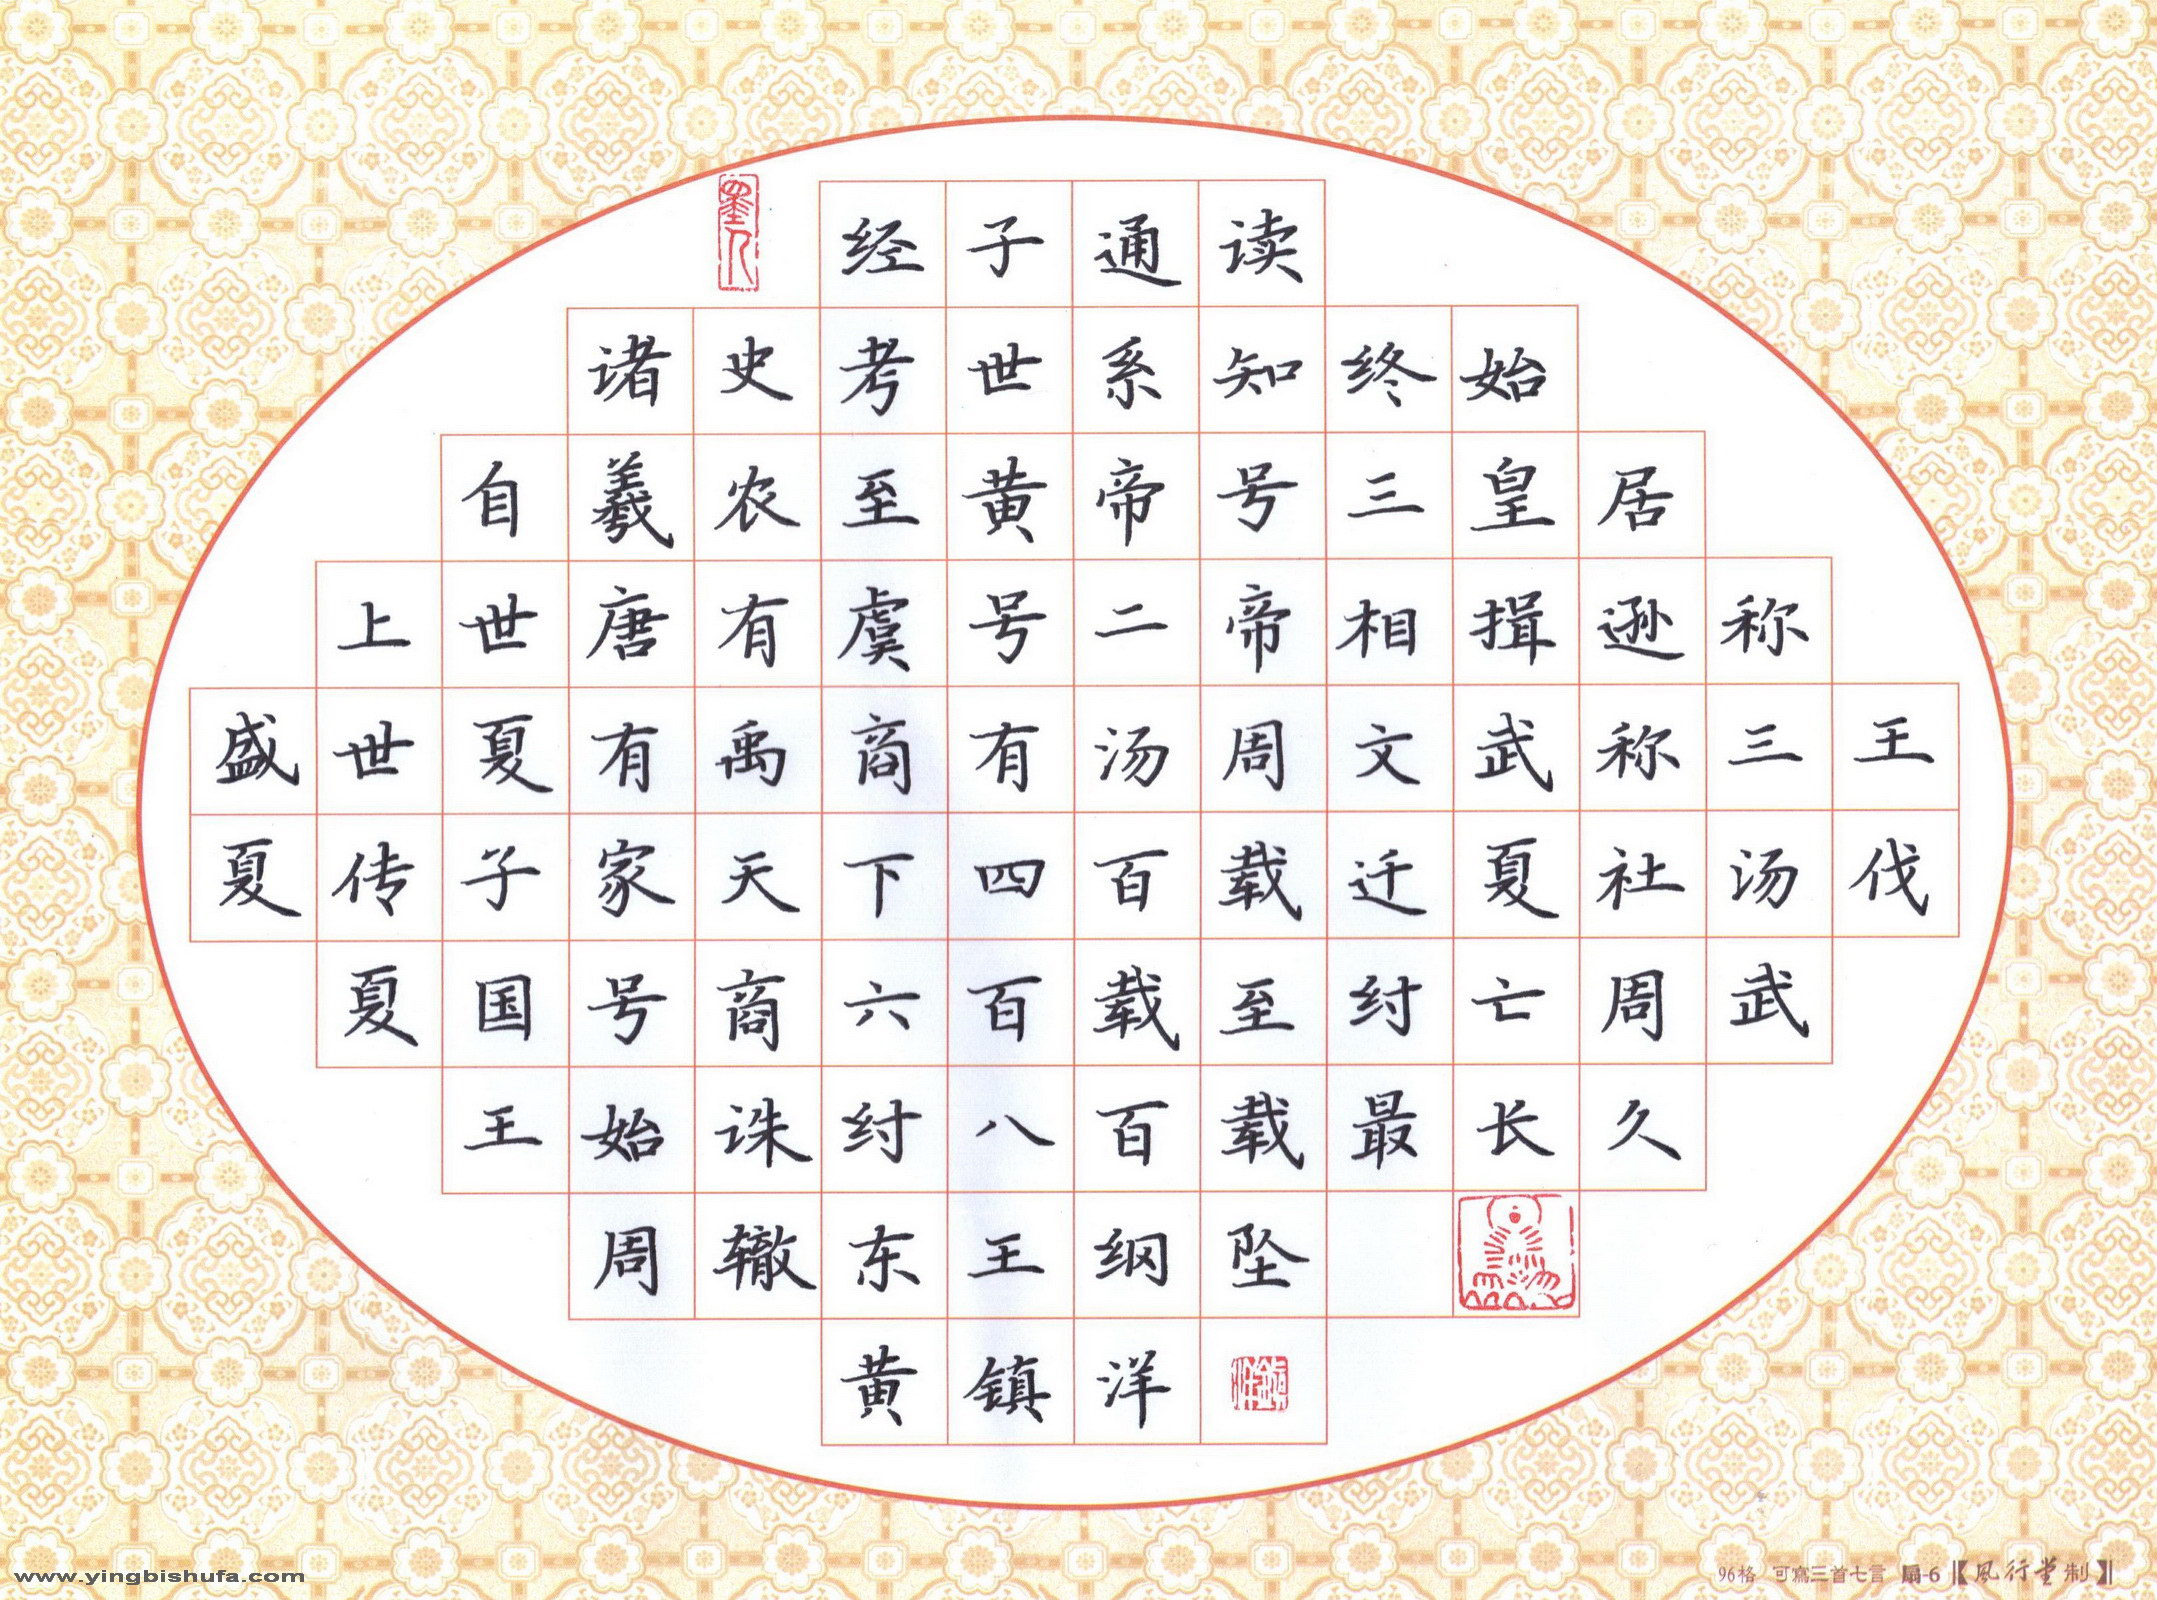 墨人
经子通读
诸史考世系知终始
自羲农至黄帝号三皇居
上世唐有虞号二帝相揖逊称
盛世夏有禹商有汤周文武称三王
夏传子家天下四百载迁夏社汤伐
夏国号商六百载至纣亡周武
王始诛纣八百载最长久
周辙东王纲坠
黄镇洋
www.yingbishufa.com
96格 可寫三首七言 扇-6【風行堂制】